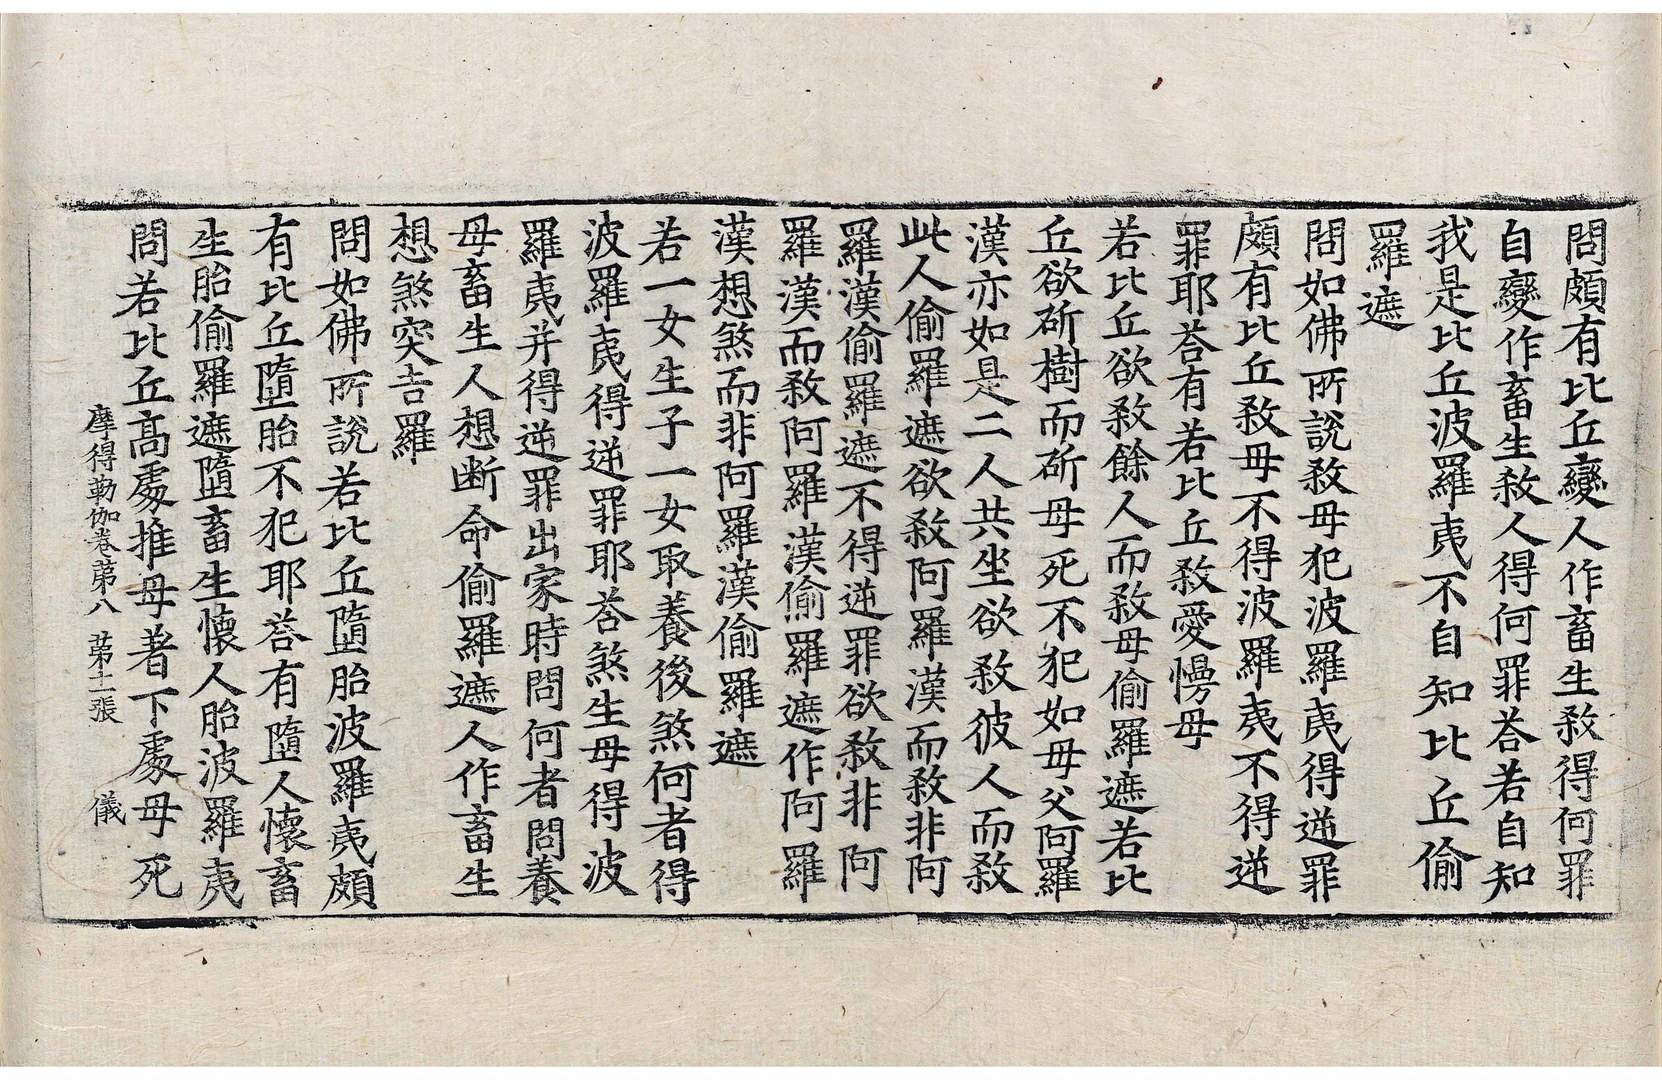 問頗有比丘變人作畜生敎得何罪
自變作畜生敎人得何罪荅若自知
我是比丘波羅夷不自知比丘偷
羅遮
問如佛所說敎母犯波羅夷得逆罪
頗有比丘敎母不得波羅夷不得逆
罪耶荅有若比丘敎愛慢母
若比丘欲敎餘人而敎母偷羅遮若比
丘欲斫樹而斫母死不犯如母父阿羅
漢亦如是二人共坐欲敎彼人而敎
此人偷羅遮欲敎阿羅漢而敎非阿
羅漢偷羅遮不得逆罪欲敎非阿
羅漢而敎阿羅漢偷羅遮作阿羅
漢想煞而非阿羅漢偷羅遮
若一女生子一女取養後煞何者得
波羅夷得逆罪耶荅煞生母得波
羅夷并得逆罪出家時問何者問養
母畜生人想断命偷羅遮人作畜生
想煞突吉羅
問如佛所說若比丘墮胎波羅夷頗
有比丘墮胎不犯耶荅有墮人懐畜
生胎偷羅遮墮畜生懐人胎波羅夷
問若比丘高處推母著下處母死
摩得勒伽卷苐八　苐十一張　儀